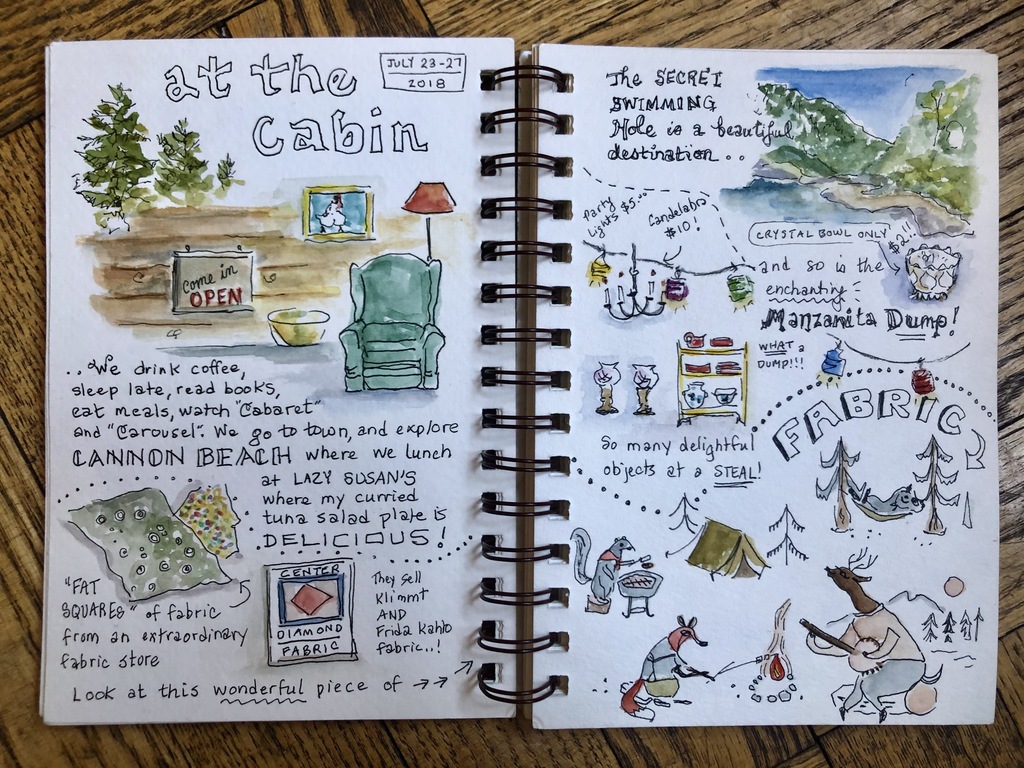 at the
cabin
JULY 23-27
2018
come in
OPEN
..We drink coffee,
sleep late, read books,
eat meals, watch "Cabaret"
and "Carousel". We go to town, and explore
CANNON BEACH where we lunch
at LAZY SUSAN'S
where my curried
tuna salad plate is
DELICIOUS!
"FAT
SQUARES" of fabric
from an extraordinary
fabric store
CENTER
DIAMOND
FABRIC
They sell
Klimmt
AND
Frida Kahlo
fabric..!
Look at this wonderful piece of →→
The SECRET
SWIMMING
Hole is a beautiful
destination..
Party
Lights $5...
Candelabra
$10!
CRYSTAL BOWL ONLY
$2!!
and so is the
enchanting
Manzanita Dump!
WHAT a
DUMP!!!
So many delightful
objects at a STEAL!
FABRIC